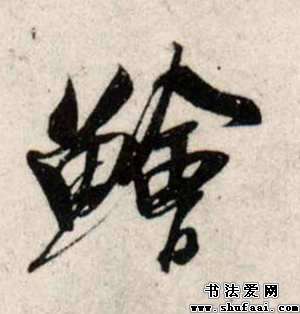 鱠
书法爱网
www.shufaai.com